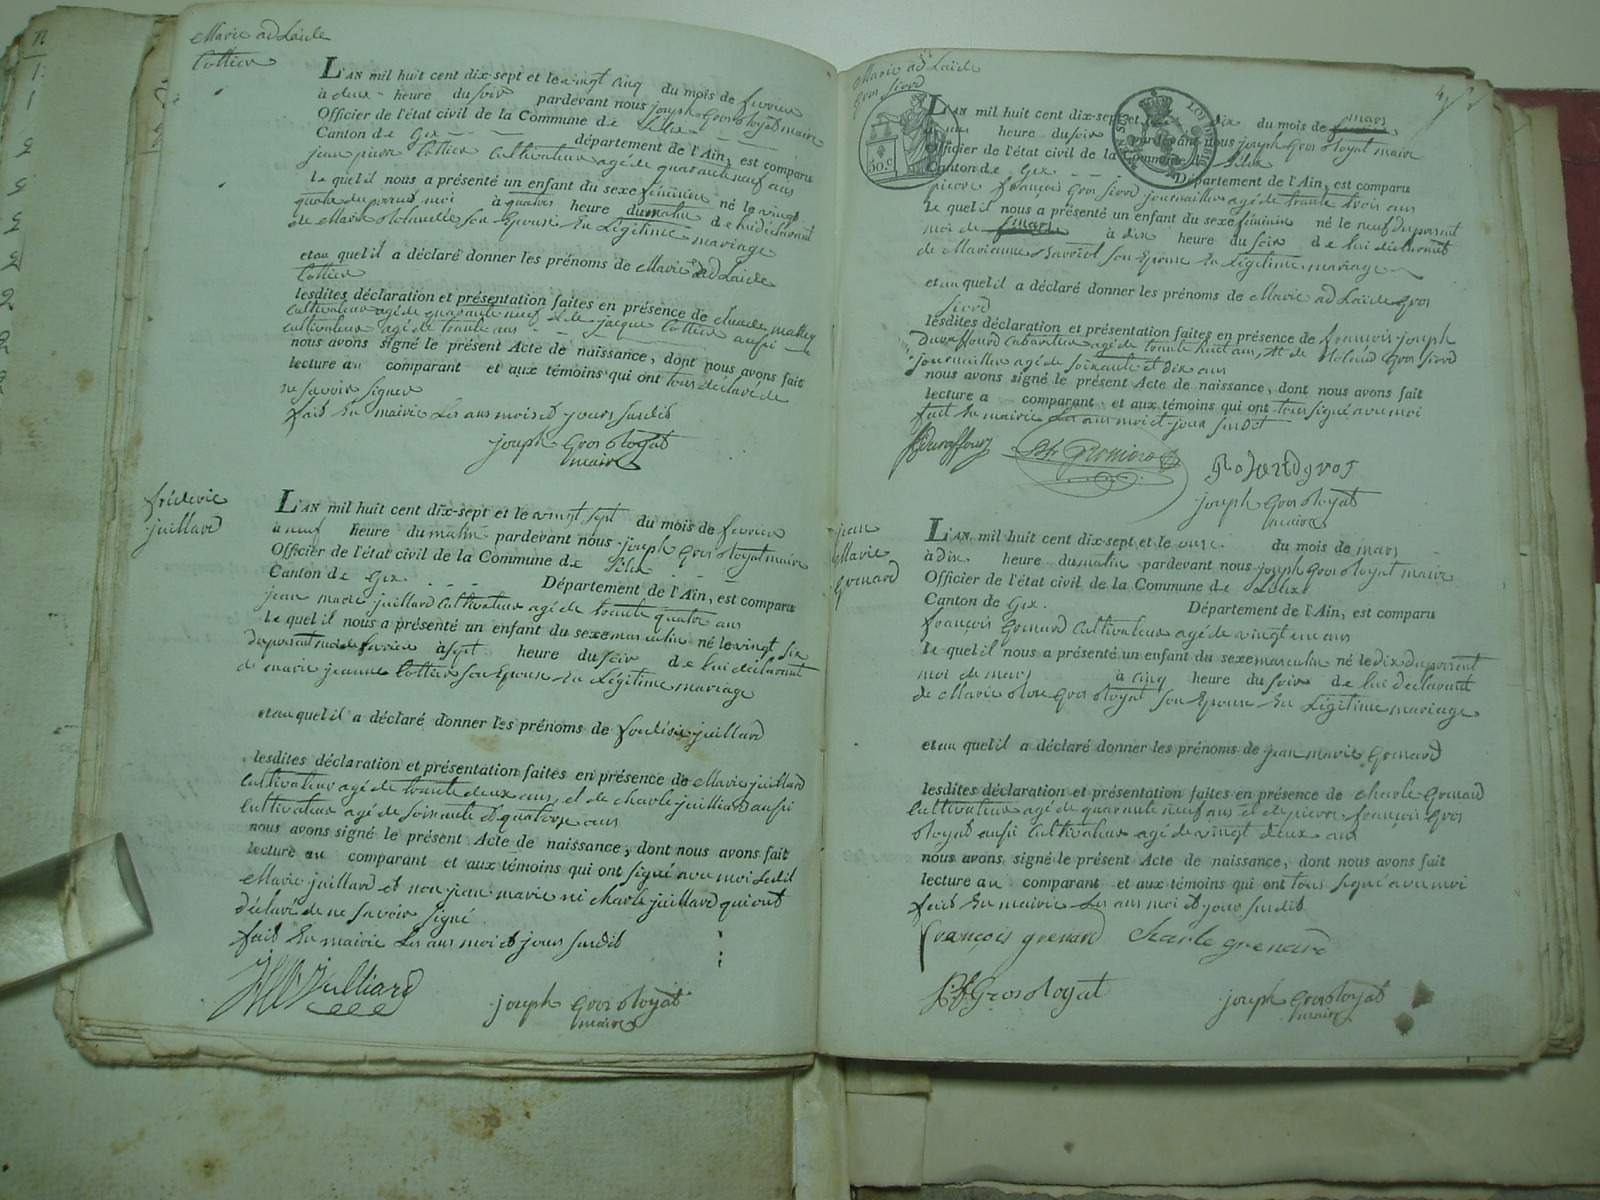 Marie adLaïde
Cottier
L'AN mil huit cent dix-sept et le vingt cinq du mois de fevrier
à deux heure du soir pardevant nous joseph Gros Royat maire
Officier de l'état civil de la Commune de Lelex
Canton de Gex département de l'Ain, est comparu
jean pierre Cottier Cultivateur agé de quarante neuf ans
Le quel il nous a présenté un enfant du sexe féminin né le vingt
quatre du present moi à quatres heure du matin de lui déclarant
de Marie son Epouse En Légitime mariage
et au quel il a déclaré donner les prénoms de Marie adLaïde
Cottier
lesdites déclaration et présentation faites en présence de
Cultivateur agé de quarante neuf et de jacque Cottier aussi
cultivateur agé de trante ans
nous avons signé le présent Acte de naissance, dont nous avons fait
lecture au comparant et aux témoins qui ont tous déclaré de
ne savoir signer
fait En mairie Les ans mois et jours susdit
joseph Gros Royat
maire
fréderic
juillard
L'AN mil huit cent dix-sept et le vingt sept du mois de fevrier
à neuf heure du matin pardevant nous joseph Gros Royat maire
Officier de l'état civil de la Commune de Lélex
Canton de Gex Département de l'Ain, est comparu
jean marie juillard Cultivateur agé de trante quatre ans
Le quel il nous a présenté un enfant du sexe masculin né le vingt six
du present mois de fevrier à sept heure du soir de lui déclarant
de marie jeanne Cottier son Epouse En Légitime mariage
et au quel il a déclaré donner les prénoms de juillard
lesdites déclaration et présentation faites en présence de Marie juillard
Cultivateur agé de trante deux ans, et de charle juilliard aussi
Cultivateur agé de soixante et quatorze ans
nous avons signé le présent Acte de naissance, dont nous avons fait
lecture au comparant et aux témoins qui ont signé avec moi Ledit
Marie juillard et non jean marie ni charle juillard qui ont
déclaré de ne savoir signé
fait En mairie Les ans moi et jours susdit
Julliard
joseph Gros Royat
maire
Marie adLaïde
Gros
L'AN mil huit cent dix-sept et le dix du mois de mars
à heure du soir pardevant nous joseph Gros Royat maire
Officier de l'état civil de la Commune de Lélex
Canton de Gex Département de l'Ain, est comparu
pierre françois Gros journaillier agé de trante trois ans
Le quel il nous a présenté un enfant du sexe féminin né le neuf du present
moi de à dix heure du soir de lui déclarant
de Marianne son Epouse En Légitime mariage
et au quel il a déclaré donner les prénoms de Marie adLaïde Gros
lesdites déclaration et présentation faites en présence de françois joseph
Duraffourd Cabaretier agé de trante huit ans, et de Roland Gros
journaillier agé de soixante et dix ans
nous avons signé le présent Acte de naissance, dont nous avons fait
lecture a comparant et aux témoins qui ont tous signé avec moi
fait En mairie Les ans moi et jour susdit
Duraffourg
joseph Gros Royat
maire
jean
Marie
Grenard
L'AN mil huit cent dix-sept et le onze du mois de mars
à dix heure du matin pardevant nous joseph Gros Royat maire
Officier de l'état civil de la Commune de Lelex
Canton de Gex. Département de l'Ain, est comparu
françois Grenard Cultivateur agé de vingt ans
Le quel il nous a présenté un enfant du sexe masculin né le dix du present
moi de mars à cinq heure du soir de lui déclarant
de Marie Rose Gros Royat son Epouse En Légitime mariage
et au quel il a déclaré donner les prénoms de jean marie Grenard
lesdites déclaration et présentation faites en présence de charle Grenard
Cultivateur agé de quarante neuf ans et de pierre françois Gros
Royat aussi Cultivateur agé de vingt deux ans
nous avons signé le présent Acte de naissance, dont nous avons fait
lecture au comparant et aux témoins qui ont tous signé avec moi
fait En mairie Les ans moi et jour susdit
françois grenard Charle grenard
Gros Royat joseph Gros Royat
maire